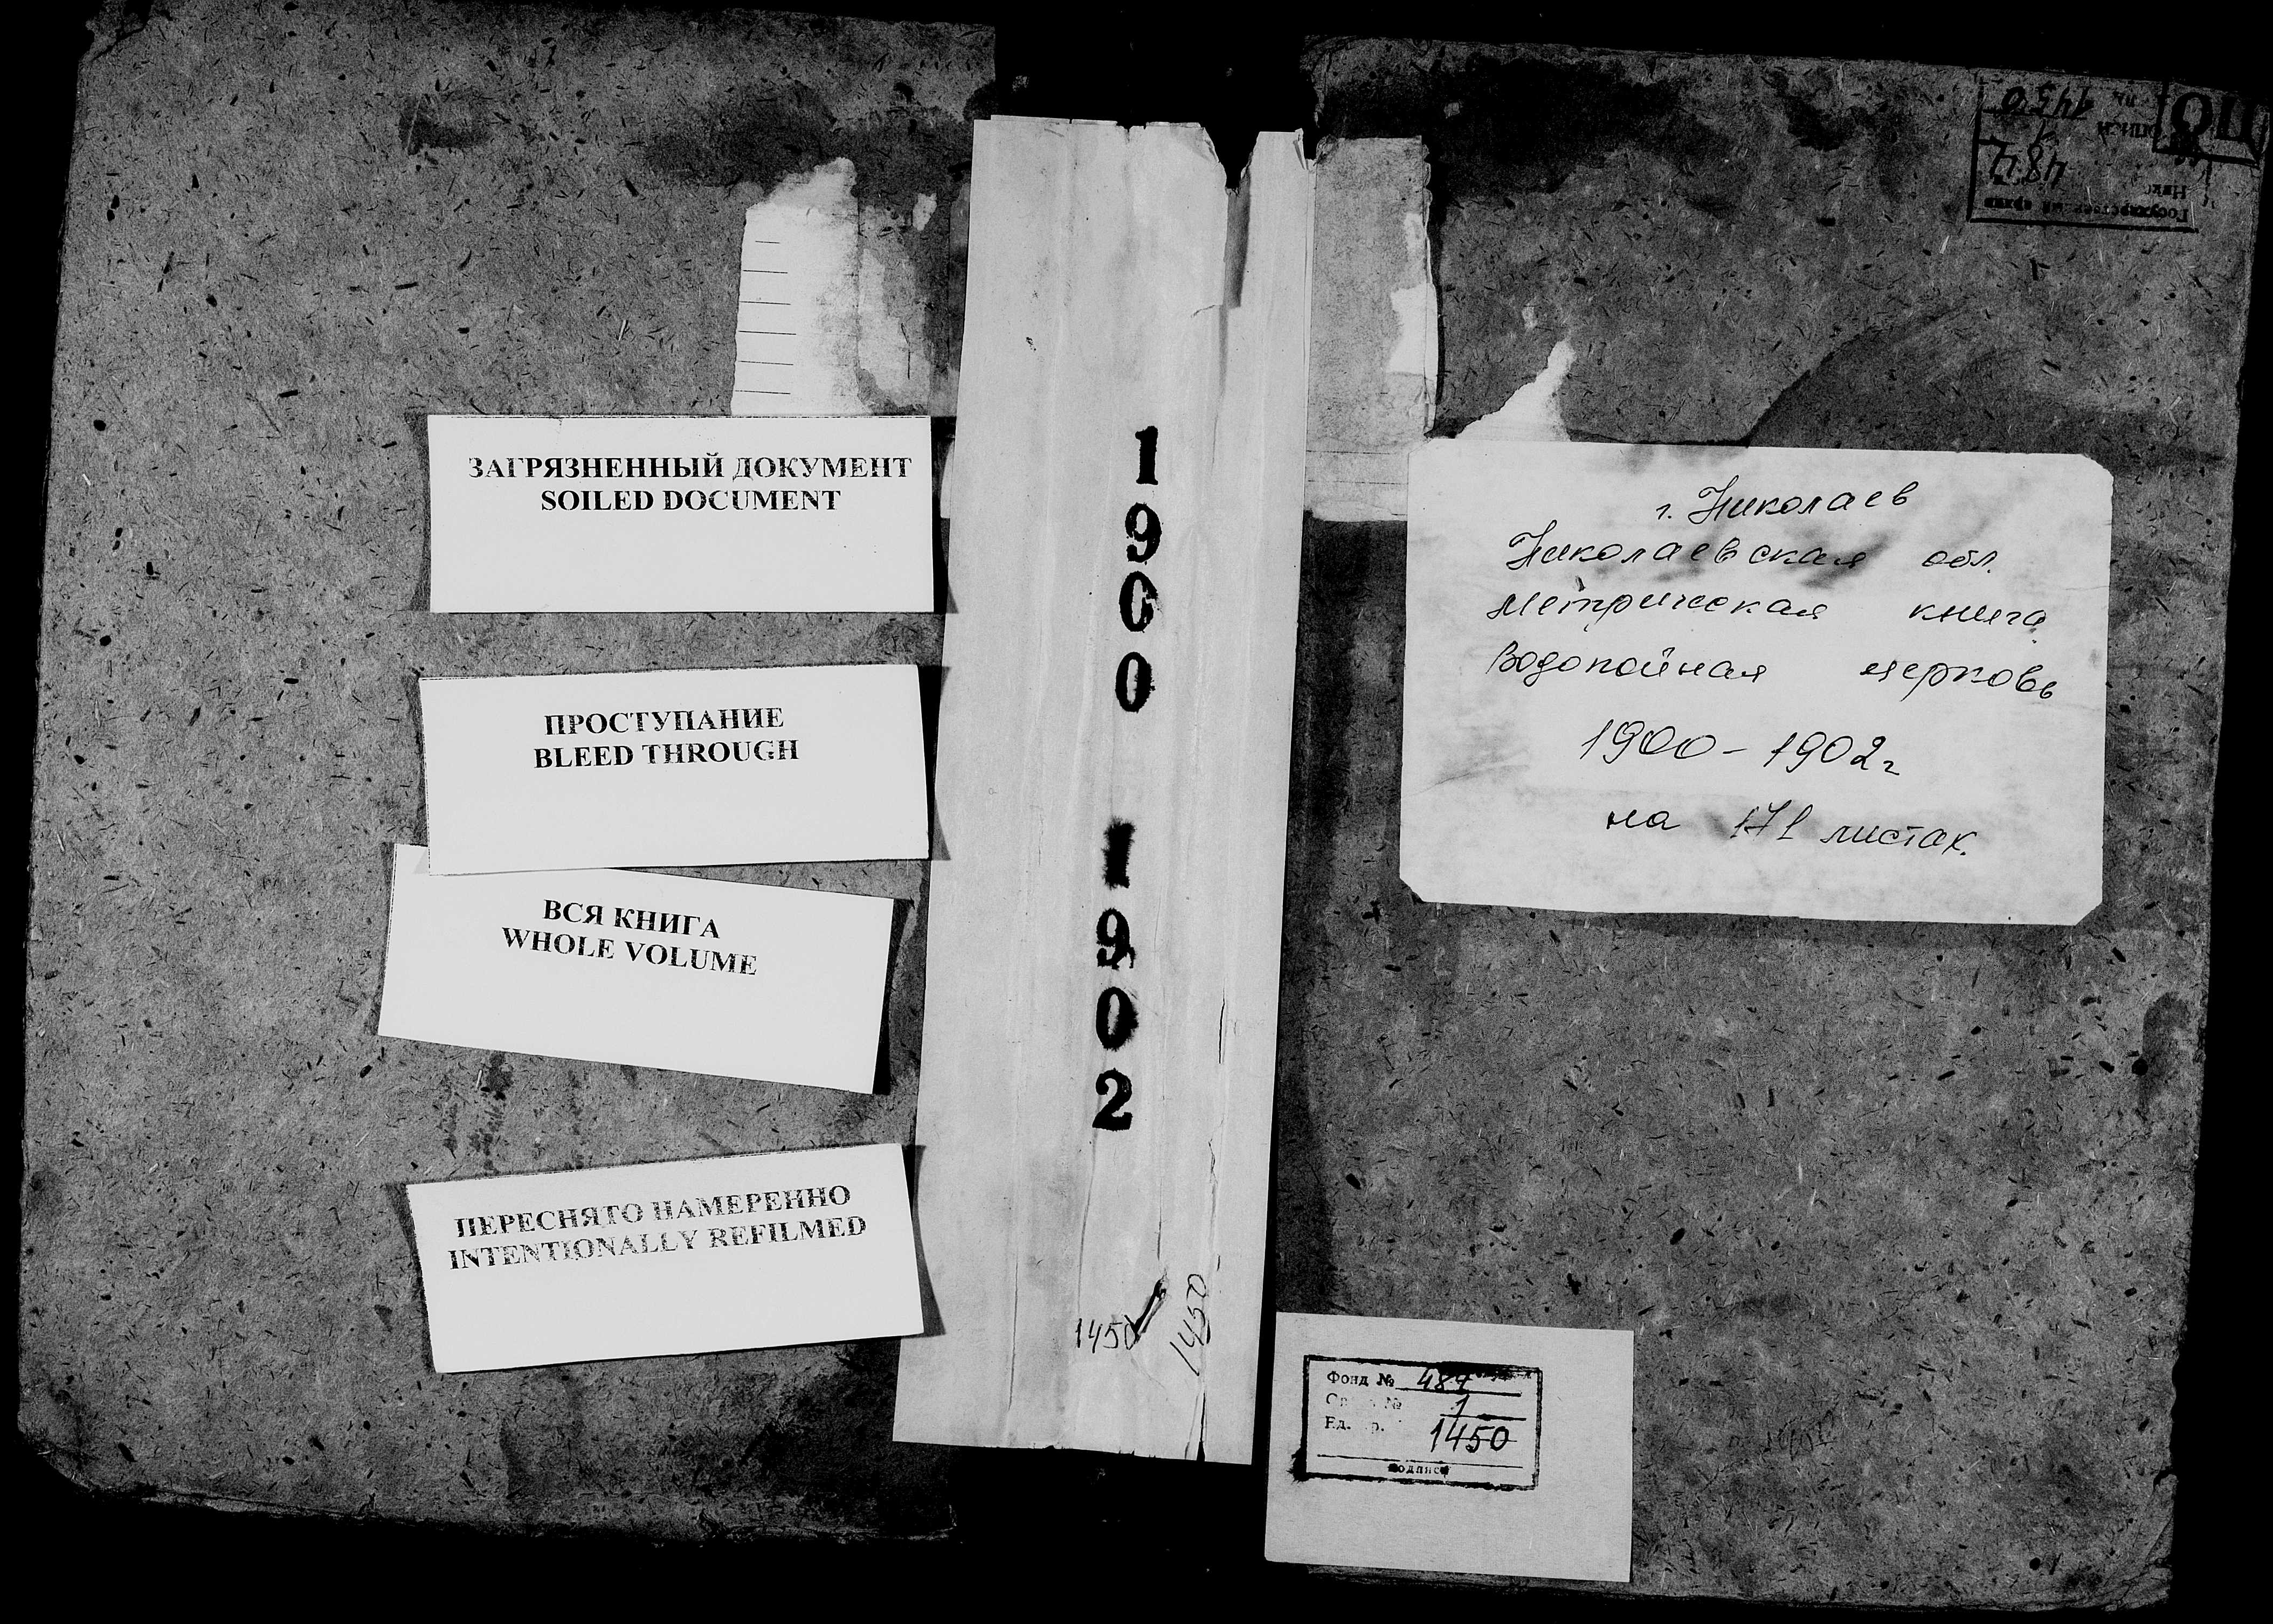 ЗАГРЯЗНЕННЫЙ ДОКУМЕНТ
SOILED DOCUMENT
ПРОСТУПАНИЕ
BLEED THROUGH
ВСЯ КНИГА
WHOLE VOLUME
ПЕРЕСНЯТО НАМЕРЕННО
INTENTIONALLY REFILMED
1900 1902
1450
1450
ОЦ
1450
484
Государственный архив
г. Николаев
Николаевская обл.
Метрическая книга
Водопойная церковь
1900-1902г
на 171 листах.
Фонд № 484
№ 1
Ед. р. 1450
подпись